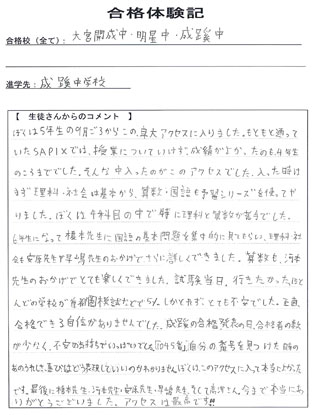 合格体験記
合格校(全て): 大宮開成中・明星中・成蹊中
進学先: 成蹊中学校
【 生徒さんからのコメント 】
ぼくは5年生の9月ごろからこの、東大アクセスに入りました。もともと通って
いたSAPIXでは、授業についていけず、成績がよかったのも4年生
のころまででした。そんな中入ったのがこのアクセスでした。入った時は
まず理科・社会は基本から、算数・国語も予習シリーズを使ってや
りました。ぼくは4科目の中で特に理科と算数が苦手でした。
6年生になって橋本先生に国語の基本問題を集中的に見てもらい、理科・社
会も 先生や早場先生のおかげでさらに楽しくできました。算数も、河本
先生のおかげでとても楽しくできました。試験当日、行きたかった、ほと
んどの学校が首都圏模試だと % しかとれず、とても不安でした。正直、
合格できる自信がありませんでした。成蹊の合格発表の日、合格者の数
が少なく、不安の気持ちでいっぱいでした。「045番」自分の番号を見つけた時の
あのうれしさ、喜びはどう表現していいのかわかりません。ぼくは、このアクセスに入って本当によかった
です。最後に橋本先生、河本先生、 先生、早場先生、そして 先生、今まで本当にあ
りがとうございました。アクセスは最高です!!